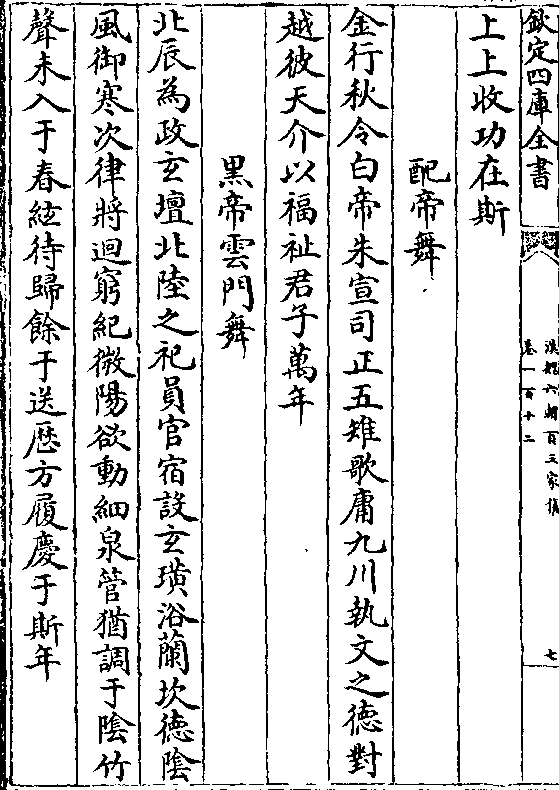 欽定四庫全書
漢魏六朝百三家集
卷一百十二
七
上上收功在斯
配帝舞
金行秋令白帝朱宣司正五雉歌庸九川執文之德對
越彼天介以福祉君子萬年
黑帝雲門舞
北辰為政玄壇北陸之祀員官宿設玄璜浴蘭坎德隂
風御寒次律將迴窮紀微陽欲動細泉管猶調于隂竹
聲未入于春絃待歸餘于送歴方履慶于斯年